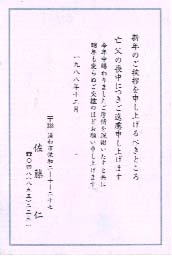 新年のご挨拶を申し上げるべきところ
亡父の喪中につきご遠慮申し上げます
本年中賜わりましたご厚情を深謝いたすと共に
明年も変らぬご交誼のほどお願い申し上げます
一九八八年十二月
佐藤 仁